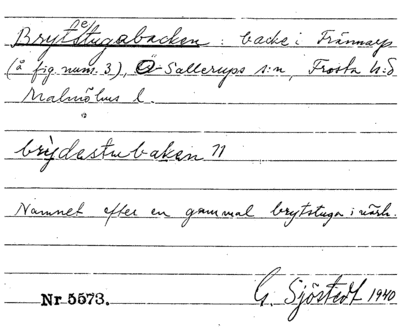 Brytstugebacken : backe i Trännarp
(å fig. num. 3), Ö. Sallerups s:n, Frosta h:d
Malmöhus l.
brỳdestubaken 11
Namnet efter en gammal brytstuga i närh.
Nr 5573. G. Sjöstedt 1940